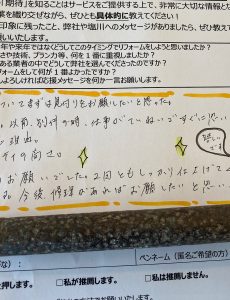 「期待」を知ることはサービスをご提供する上で、非常に大切な情報と
葉を綴り交ぜながら、ぜひとも具体的に教えてください！
印象に残ったこと、弊社や塩川へのメッセージがありましたら、ぜひ教え
願いいたします。
年や来年ではなくどうしてこのタイミングでリフォームをしようと思いましたか？
さや技術、ブランカ等、何を1番に重視しましたか？
ある業者の中でどうして弊社を選んでくださったのですか？
フォームをして何が１番よかったですか？
しよろしければ応援メッセージを何か一言お願いします。
ついてまずは見付りをお願いしたいと思った。
以前、別件の時、仕事がていねいですぐに
理由。
ティの高さ。
嬉しい
です
お願いでした。2回ともしっかり仕上げてく
今後修理があればお願いしたいと思い
な）：
ペンネーム（匿名ご希望の方）
押します。
□私が推薦します。
□私は推薦しません。